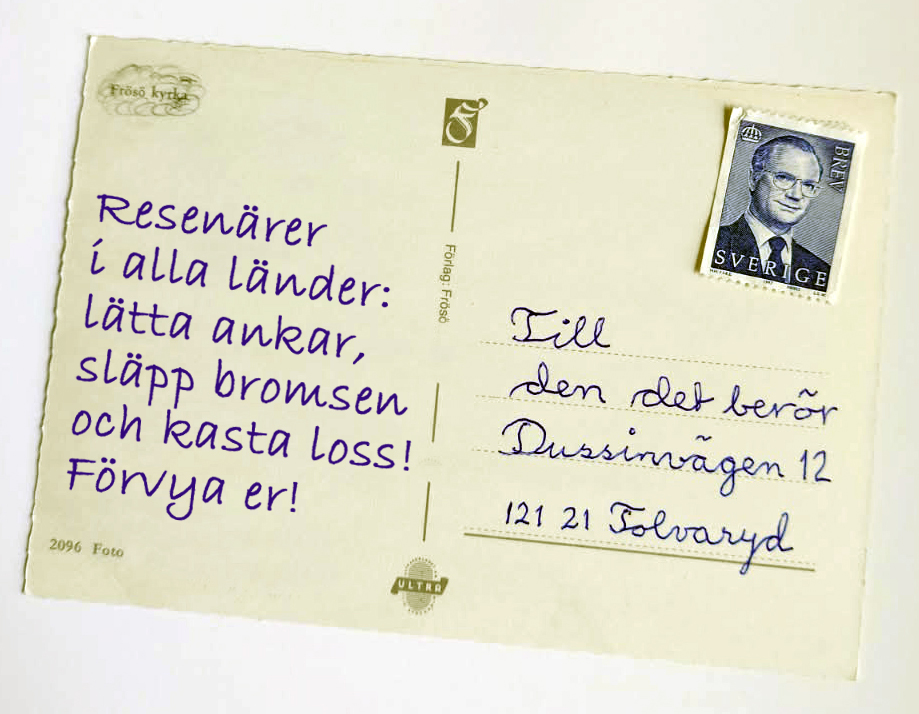 Frösö kyrka
Resenärer
i alla länder:
lätta ankar,
släpp bromsen
och kasta loss!
Förvya er!
2096 Foto
Förlag: Frösö
ULTRA
BREV
SVERIGE
Till
den det berör
Dussinvägen 12
121 21 Tolvaryd